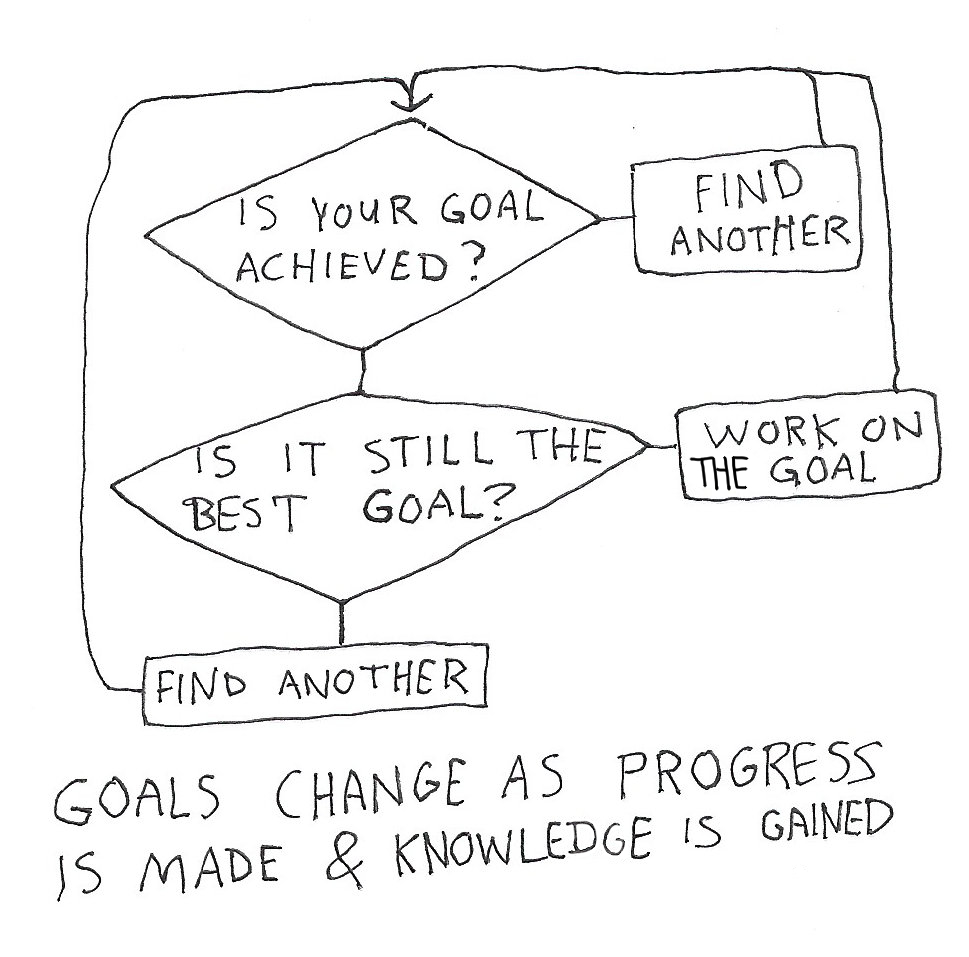 IS YOUR GOAL
ACHIEVED?
FIND
ANOTHER
IS IT STILL THE
BEST GOAL?
WORK ON
THE GOAL
FIND ANOTHER
GOALS CHANGE AS PROGRESS
IS MADE & KNOWLEDGE IS GAINED